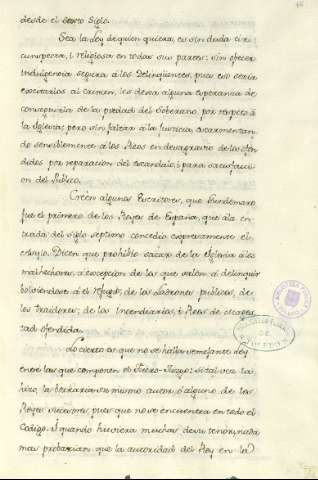 desde el sexto Siglo.
Sea la Ley de quien quiera, es sin duda cir
cunspecta, i religiosa en todas sus partes: sin ofrecer
Indulgencia segura à los Delinquentes, pues eso seria
excitarlos al crimen, les deva alguna esperanza de
conseguirla de la piedad del Soberano, por respeto à
la Iglesia; pero sin faltar à la Justicia, escarmentan
do sensiblemente à los Reos en desagravio de los ofen
didos por reparacion del escandalo, i para satisfacci
on del Publico.
Créen algunos Escritores, que Gundemaro
fue el primero de los Reyes de España, que à la en
trada del siglo septimo concedió expresamente el
asylo. Dicen que prohibió sacar de la Iglesia à los
malhechores, à excepcion de los que salen à delinquir
bolviendose à el Refugio; de los Ladrones publicos, de
los traidores; de los Incendiarios, i Reos de Magestad ofendida.
Lo cierto es que no se halla semejante Ley
entre las que componen el Fuero-Juzgo: si tal vez la
hizo, la borrarian su mismo autor, ò alguno de los
Reyes sucesores, pues que no se encuentra en todo el
Codigo. I quando huviera muchas de su tenor, nada
mas probarian que la autoridad del Rey en la